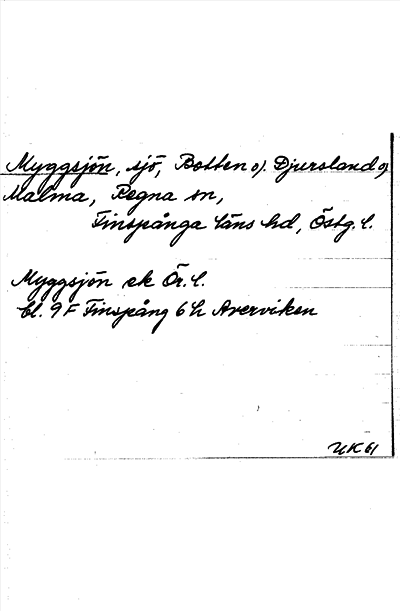 Myggsjön, sjö, Botten o). Djursland o)
Malma, Regna sn,
Finspånga läns hd, Östg. l.
Myggsjön ek Ör. l.
bl. 9 F Finspång 6 h Averviken
UK 61